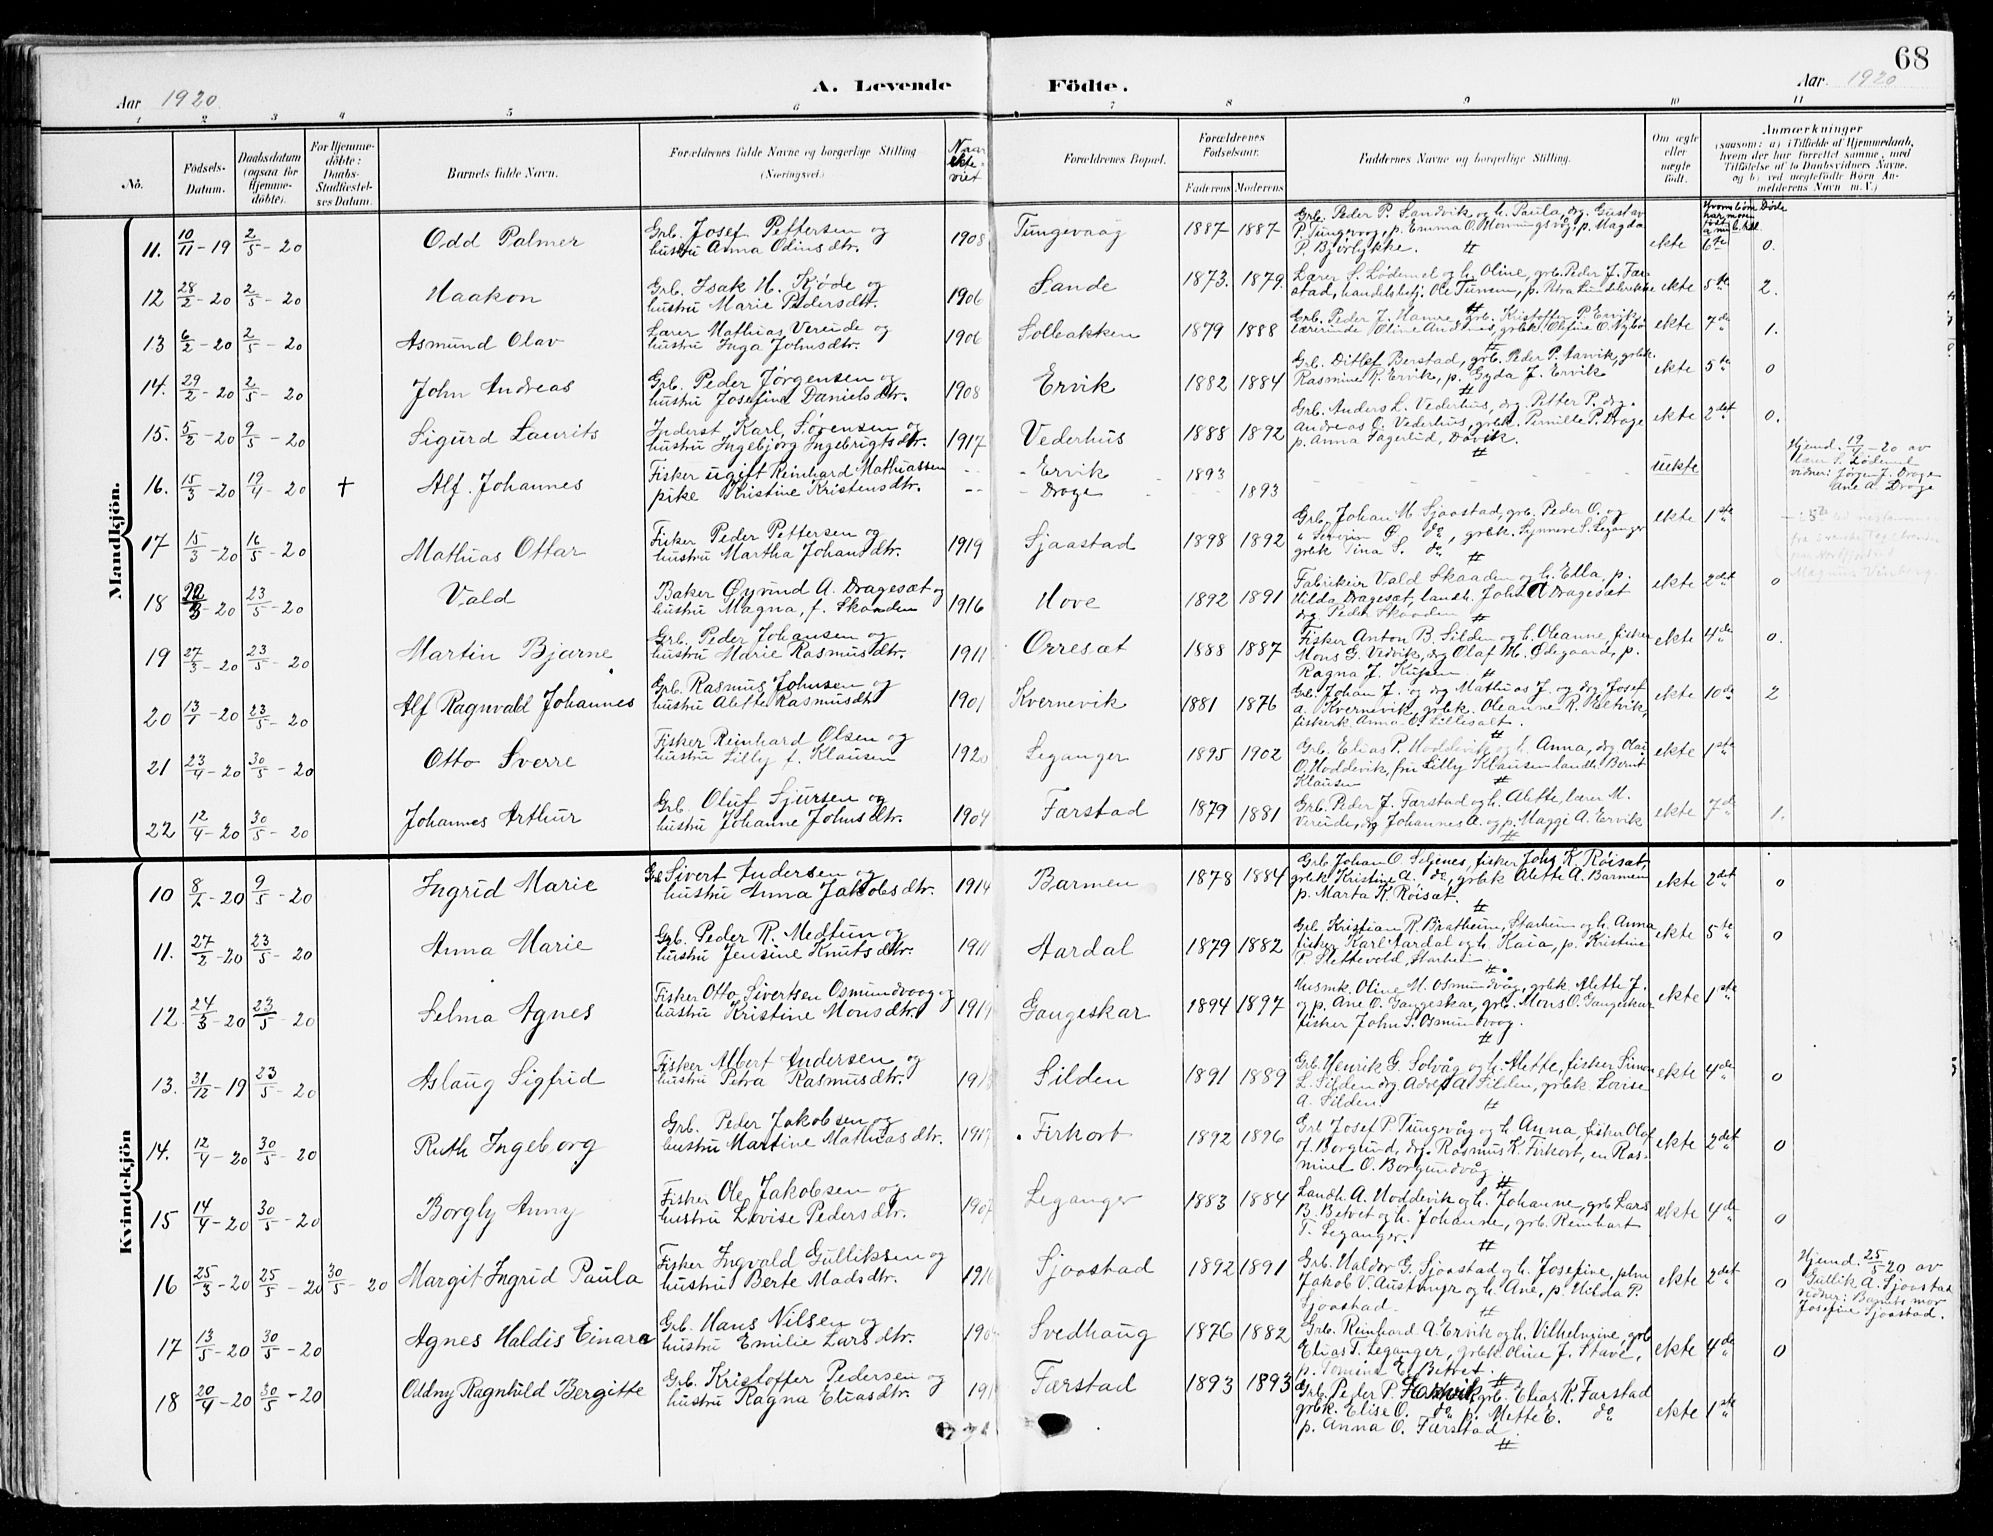 68
Aar 1920
A. Levende
Födte.
Aar. 1920
1 2 3 4 5 6 7 8 9 10 11
No.
Födsels-Datum.
Daabsdatum (ogsaa for Hjemmedöbte).
For Hjemmedöbte: Daabs-Stadfæstelses Datum.
Barnets fulde Navn.
Forældrenes fulde Navne og borgerlige Stilling
(Næringsvei.)
Naar ekteviet
Forældrenes Bopæl.
Forældrenes Födselsaar.
Faderens Moderens
Faddernes Navne og borgerlige Stilling.
Om ægte eller uægte født.
Anmærkninger
(saasom: a) i Tilfælde af Hjemmedaab, hvem der har forrettet samme, med Tilföielse af to Daabsvidners Navne, og b) ved uægtefödte Börn Anmelderens Navn m. V.)
Mandkjön.
11. 10/11-19 2/5-20 Odd Palmer Grb. Josef Pettersen og 1908 Tungevaag 1887 1887 Grb. Peder P. Sandvik og h. Paula, drg. Gustav
hustru Anna Odinsdtr. P. Tungevaag, p. Emma O. Honningsvåg, p. Magda
P. Bjørlykke. ekte 6te 0.
12 28/2-20 2/5-20 Haakon Grb. Isak H. Kjøde og 1906 Sande 1873. 1879. Lærer S. Lødemel og h. Oline, grb. Peder J. Fær-
hustru Marie Pedersdtr. stad, handelsbetj. Ole Tunem, p. Petra Lundebrekke ekte 5te 2.
13 6/2-20 2/5-20 Asmund Olav Lærer Mathias Vereide og 1906 Solbakken 1879 1888 Grb. Peder J. Hamre, grb. Kristoffer P. Ervik,
hustru Inga Johnsdtr. lærerinde Oline Andenes, grbk. Olefine O. Nybø ekte 7de 1.
14. 29/2-20 2/5-20 John Andreas Grb. Peder Jørgensen og 1908 Ervik 1882 1884 Grb. Ditlef Berstad, grb. Peder P. Aarvik, grbk.
hustru Josefine Danielsdtr. Rasmine R. Ervik, p. Gyda J. Ervik ekte 5te 0
15. 5/2-20 9/5-20 Sigurd Laurits Inderst Karl Sørensen og 1917 Vederhus 1888 1892 Grb. Anders L. Vederhus, drg. Petter P. drg.
hustru Ingebjørg Ingebrigtsdtr. Andreas O. Vederhus, grbk. Pernille P. Drage
p. Anna Fagerlid, Davik. ekte 2det 0.
16. 15/3-20 19/4-20 + Alf Johannes Fisker ugift Reinhard Mathiassen -- Ervik 1893
pike Kristine Kristensdtr. -- Drage 1893 uekte
Hjemd. 19/4-20 av
lærer S. Lødemel
vidner: Jørgen J. Drage
Ane A. Drage
17 15/3-20 16/5-20 Mathias Ottar Fisker Peder Pettersen og 1919 Sjaastad 1898 1892 Grb. Johan M. Sjaastad, grb. Peder O. og
hustru Martha Johansdtr. " Severin O do, grbk. Synneve S. Leganger
grbk Tina S. do ekte 1ste
18 22/3-20 23/5-20 Vald Baker Øyvind A. Dragesæt og 1916 Hove 1892 1891 Fabrikeier Vald Skaaden og h. Ella, p.
hustru Magna, f. Skaaden Hilda Dragesæt, landh. John A Dragesæt
drg. Peder Skaaden ekte 2det 0
19 27/3-20 23/5-20 Martin Bjarne Grb. Peder Johansen og 1911 Orresæt 1888 1887 Fisker Anton B. Silden og h. Oleanne, fisker
hustru Marie Rasmusdtr. Mons G. Vedvik, drg Olaf M. Ødegaard, p.
Ragna J. ekte 4de 0.
20 13/1-20 23/5-20 Alf Ragnvald Johannes Grb. Rasmus Johnsen og 1901 Kvernevik 1881 1876 Grb. Johan J. og drg Mathias J. og drg. Josef
hustru Alette Rasmusdtr a. Kvernevik, grbk. Oleanne R.
fiskerk Anna O. Lillesæt. ekte 10de 2
21 23/4-20 30/5-20 Otto Sverre Fisker Reinhard Olsen og 1920 Leganger 1895 1902 Grb. Elias P. Hoddevik og h. Anna, drg Olai
hustru Lilly f. Klausen O. Hoddevik, fru Lilly Klausen landh. Bernt
Klausen ekte 1ste
22 12/4-20 30/5-20 Johannes Arthur Grb. Oluf Sjursen og 1904 Færstad 1879 1881 Grb. Peder J. Færstad og h. Alette, lærer M.
hustru Johanne Johnsdtr. Vereide, drg Johannes A. og p. Maggi A. Ervik ekte 7de 1.
Kvindekjön
10 8/2-20 9/5-20 Ingrid Marie Grb Sivert Andersen og 1914 Barmen 1878 1884 Grb Johan O. Seljenes, fisker John K. Røisæt,
hustru Anna Jakobsdtr. grbk Kristine A. do, grbk Alette A. Barmen
p. Marta K. Røisæt. ekte 2det 0
11. 27/2-20 23/5-20 Anna Marie Grb. Peder R. Medtun og 1911 Aardal 1879 1882 Grb Kristian R. Bratheim, Starheim og h. Anna
hustru Jensine Knutsdtr. fisker Karl Aardal og h. Kaia, p. Kristine
P. Slettevold, Starheim ekte 5te 0
12. 24/3-20 23/5-20 Selma Agnes Fisker Otto Sivertsen Osmundvaag og 1919 Gangeskar 1894 1897 Husmk. Oline M. Osmundvåg, grbk. Alette J.
hustru Kristine Monsdtr. og p. Ane O. Gangeskar, grb. Mons O. Gangeskar
fisker John S. Osmundvaag. ekte 1ste
13. 31/12-19 23/5-20 Aslaug Sigfrid Fisker Albert Andersen og Silden 1891 1889 Grb. Henrik G. Solvåg og h. Alette, fisker Simon
hustru Petra Rasmusdtr. L. Silden drg Adolf A. Silden, grbk Lovise
A. Silden. ekte 4de 0
14. 12/4-20 30/5-20 Ruth Ingeborg Grb. Peder Jakobsen og 1917 Firkort 1892 1896 Grb Josef P. Tungevåg og h. Anna, fisker Olaf
hustru Martine Mathiasdtr. J. Borgund, drg. Rasmus K. Firkort, en Ras-
mine O. Borgundvåg. ekte 2det 0
15 14/4-20 30/5-20 Borgly Anny Fisker Ole Jakobsen og 1907 Leganger 1883 1884 Landh. A. Hoddevik og h. Johanne, grb Lars
hustru Lovise Pedersdtr. B. Betvet og h. Johanne, grb. Reinhart
T. Leganger. ekte 4de 0
16 25/3-20 25/5-20 30/5-20 Margit Ingrid Paula Fisker Ingvald Gulliksen og 1916 Sjaastad 1892 1891 Grb. Haldor G. Sjaastad og h. Josefine, plm
hustru Berte Madsdtr. Jakob V. Austmyr og h. Ane, p. Hilda P.
Sjaastad. ekte 2det 0
Hjemd. 25/5 20 av
Gullik A. Sjaastad
vidner: Barnets mor
Josefine Sjaastad.
17 13/5-20 30/5-20 Agnes Haldis Einara Grb. Hans Nilsen og Svedhaug 1876 1882 Grb. Reinhard A. Ervik og h. Vilhelmine, grb
hustru Emilie Larsdtr. Elias T. Leganger, grbk. Oline J. Stave,
p. Tomine E. Betvet. ekte 4de 0
18 20/4-20 30/5-20 Oddny Ragnhild Bergitte Grb. Kristoffer Pedersen og Færstad 1893 1893 Grb. Peder P. grb. Elias K. Færstad
hustru Ragna Eliasdtr. grbk. Elise O. do p. Mette E. do
p. Anna O. Færstad. ekte 1ste